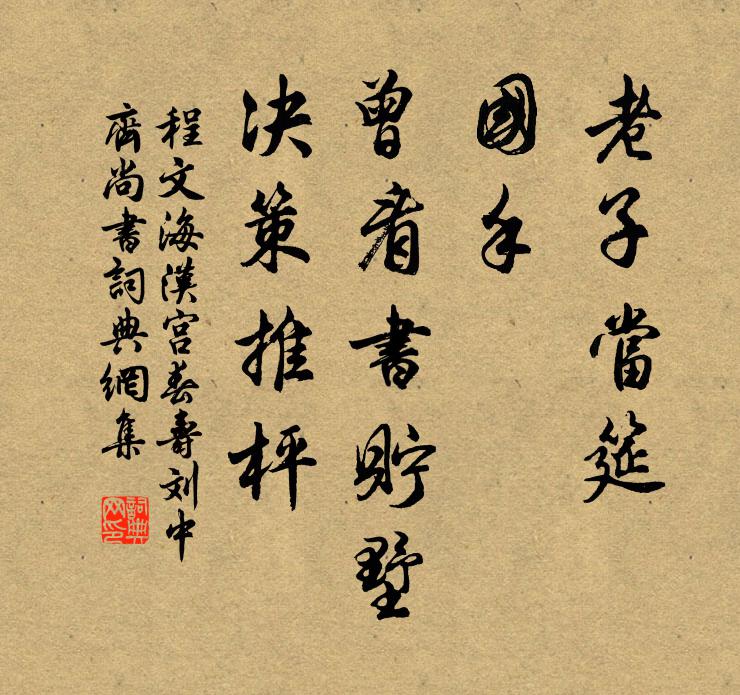 老子當筵
國手
曾看書貯墅
决策推枰
程文海漢宫春壽刘中
齋尚書詞典網集
詞典网印